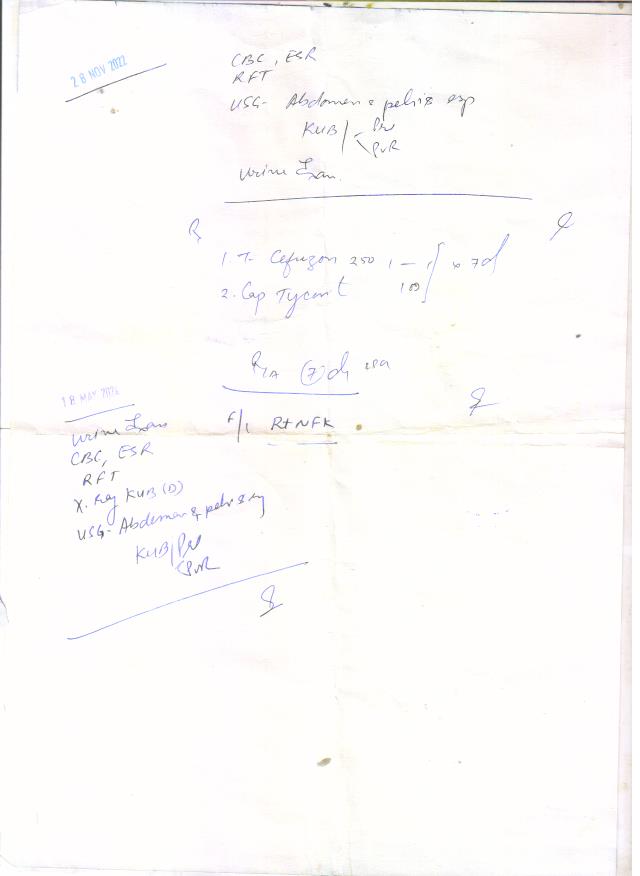 28 NOV 2022
CBC, ESR
RFT
USG- Abdomen & pelvis esp
KUB / Pre
PVR
Urine Exam.
Rx
1. T- Cefuzon 250 1 — 1 x 7d
2. Cap Tycent
R/A (7)d
18 MAY
Urine Exam
CBC, ESR
RFT
X. Ray KUB (D)
USG- Abdomen & pelvis
KUB / Pre
PVR
F/1 Rt NFK